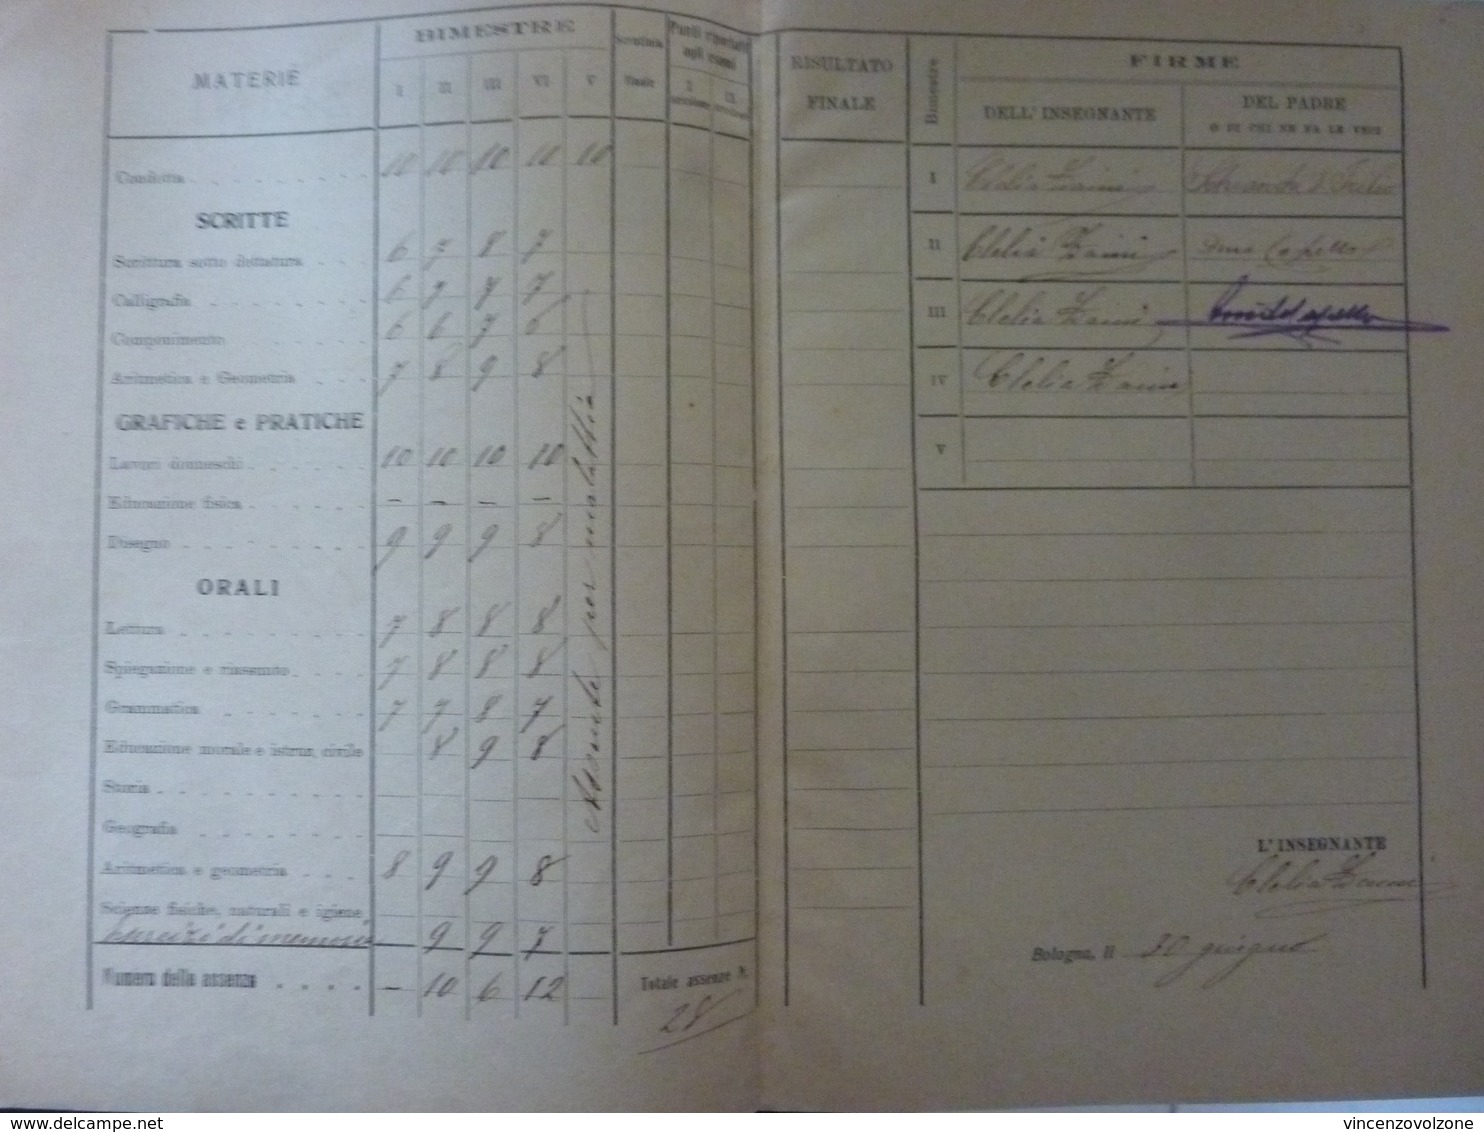 MATERIE
BIMESTRE
I II III VI V
Scrutinio finale
Punti riportati agli esami
I sessione II sessione
Condotta 10 10 10 10 10
SCRITTE
Scrittura sotto dettatura 6 7 8 7
Calligrafia 6 7 7 7
Componimento 6 6 7 6
Aritmetica e Geometria 7 8 9 8
GRAFICHE e PRATICHE
Lavori donneschi 10 10 10 10
Educazione fisica - - - -
Disegno 9 9 9 8
ORALI
Lettura 7 8 8 8
Spiegazione e riassunto 7 8 8 8
Grammatica 7 7 8 7
Educazione morale e istruz. civile 8 9 8
Storia
Geografia
Aritmetica e geometria 8 9 9 8
Scienze fisiche, naturali e igiene
Esercizi di memoria - 9 9 7
Numero delle assenze - 10 6 12
Assente per malattia
Totale assenze N. 28
RISULTATO FINALE
Bimestre
FIRME
DELL'INSEGNANTE
DEL PADRE
O DI CHI NE FA LE VECI
I Clelia Zanni
II Clelia Zanni
III Clelia Zanni
IV Clelia Zanni
V
L'INSEGNANTE
Clelia Zanni
Bologna, li 30 giugno
delcampe.net
vincenzovolzone